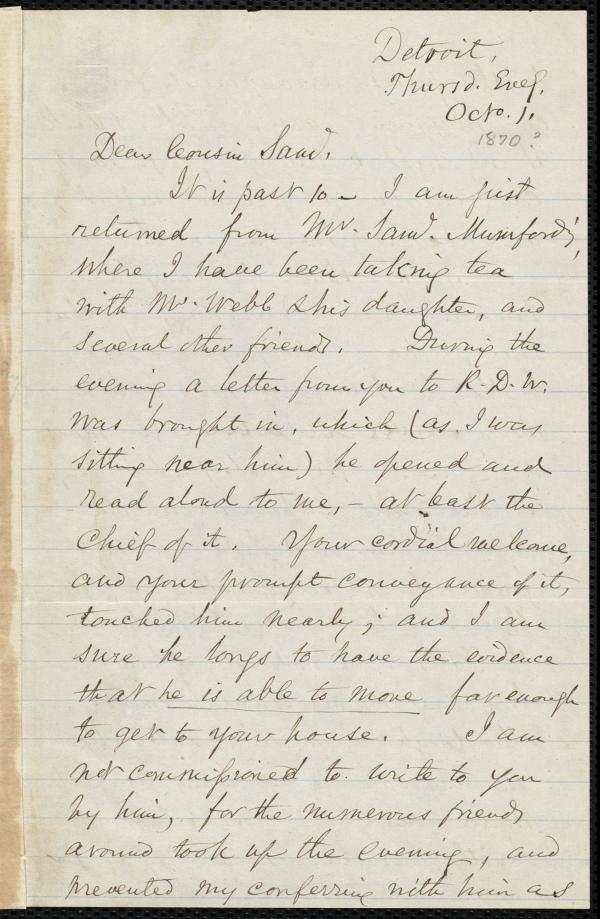 Detroit,
Thursd. Eveg.
Octo. 1.
1870?
Dear Cousin Saml.
It is past 10 – I am just
returned from Mr. Saml. Mumford's,
where I have been taking tea
with Mr. Webb & his daughter, and
several other friends. During the
evening a letter from you to R.D.W.
was brought in, which (as I was
sitting near him) he opened and
read aloud to me, – at least the
chief of it. Your cordial welcome,
and your prompt conveyance of it,
touched him nearly; and I am
sure he longs to have the evidence
that he is able to move far enough
to get to your house. I am
not commissioned to write to you
by him, for the numerous friends
around took up the evening, and
prevented my conferring with him as